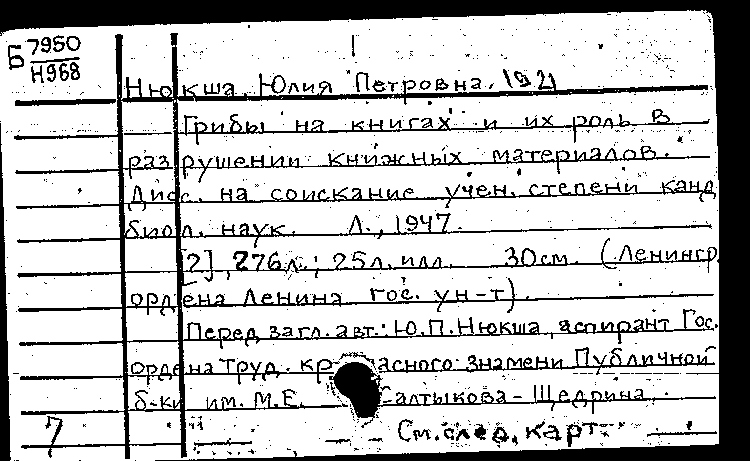 Б 7950
Н968
Нюкша, Юлия Петровна, 1921
Грибы на книгах и их роль в
разрушении книжных материалов.
Дисс. на соискание учен. степени канд
биол. наук. Л., 1947.
[2], 276л.; 25л. илл. 30см. (Ленингр.
ордена Ленина гос. ун-т).
Перед загл. авт.: Ю.П. Нюкша, аспирант Гос.
ордена Труд. красного знамени Публичной
б-ки им. М.Е. Салтыкова-Щедрина.
7 См. след. карт.